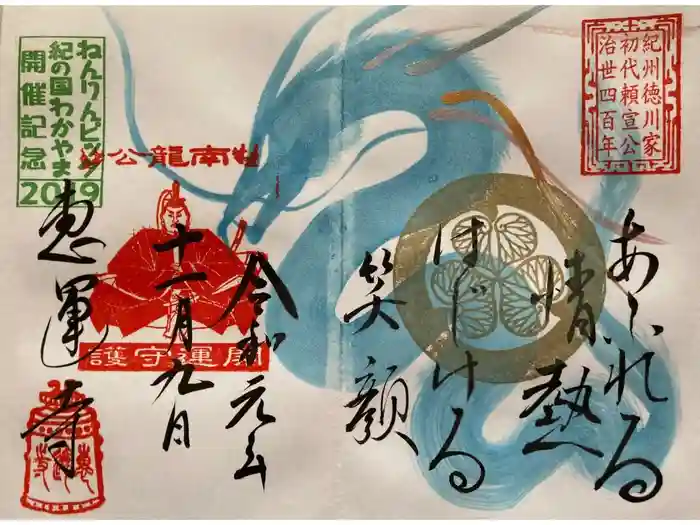 紀州徳川家
初代頼宣公
治世四百年
あふれる
情熱
はじける
笑顔
令和元年
十一月九日
惠運寺
南龍公
開運守護
ねんりんピック
紀の国わかやま
開催記念
2019